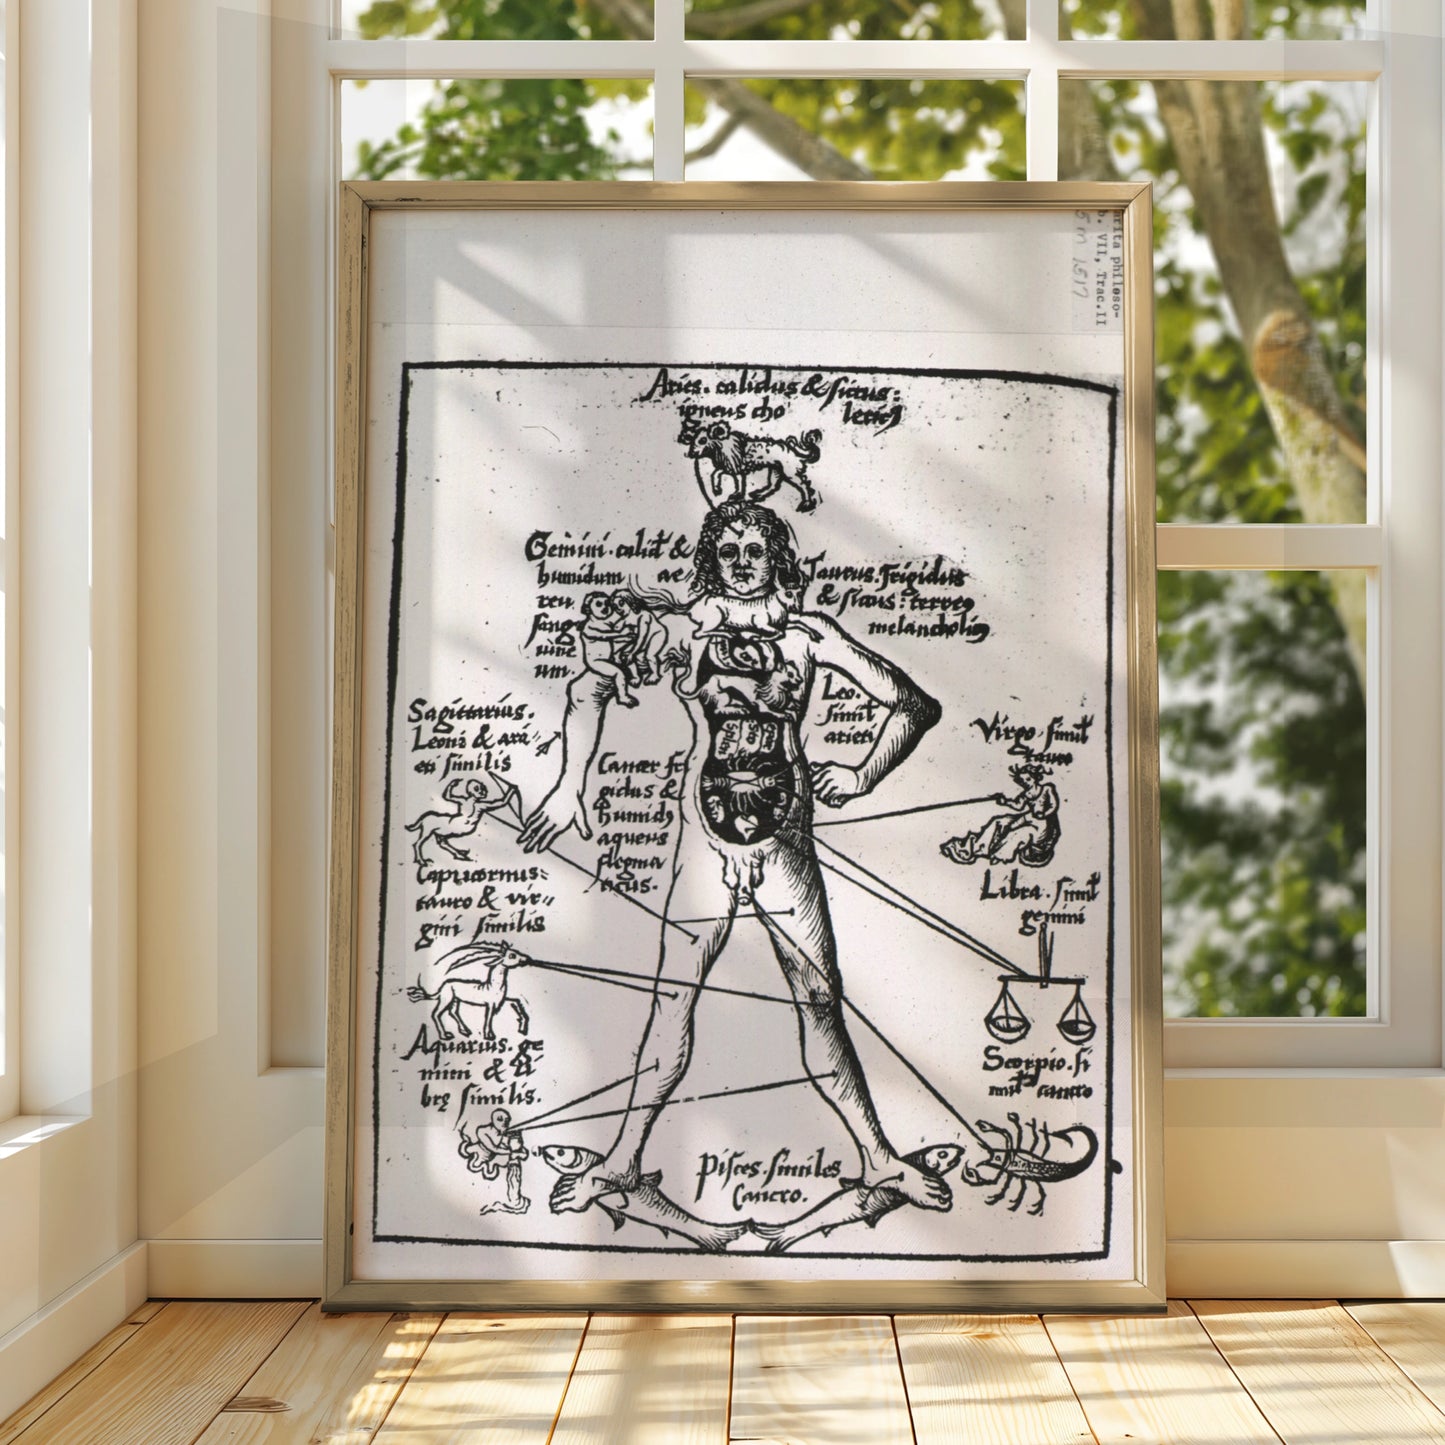 arita philoso-
b. VII, Trac.II
5m 1517
Aries. calidus & siccus:
igneus cho lericꝰ
Gemini. calid' &
humidum ae
reu
sangu
uine
um.
Taurus. frigidus
& siccus: terreꝰ
melancholicꝰ
Leo.
simil'
arieti
Sagittarius.
Leoni & ari=
eti similis
Cancer fri
gidus &
humidꝰ
aqueus
flegma
ticus.
Virgo. simil'
tauro
Capricornus:
tauro & vir=
gini similis
Libra. simil'
gemini
Aquarius. ge
mini & li
brę similis.
Scorpio. si
mil' cancro
Pisces. similes
Cancro.